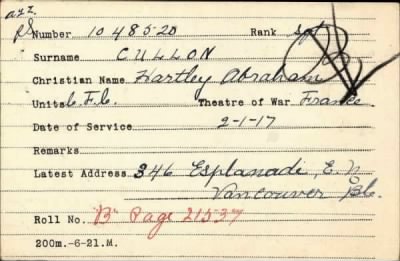 azz.
RS Number 1048520 Rank Sgt
Surname CULLON
Christian Name Hartley Abraham
Units C.F.C. Theatre of War France
Date of Service 2-1-17
Remarks
Latest Address 346 Esplanade, E. N
Vancouver B.C.
Roll No. "B" Page 21537
200m.-6-21.M.